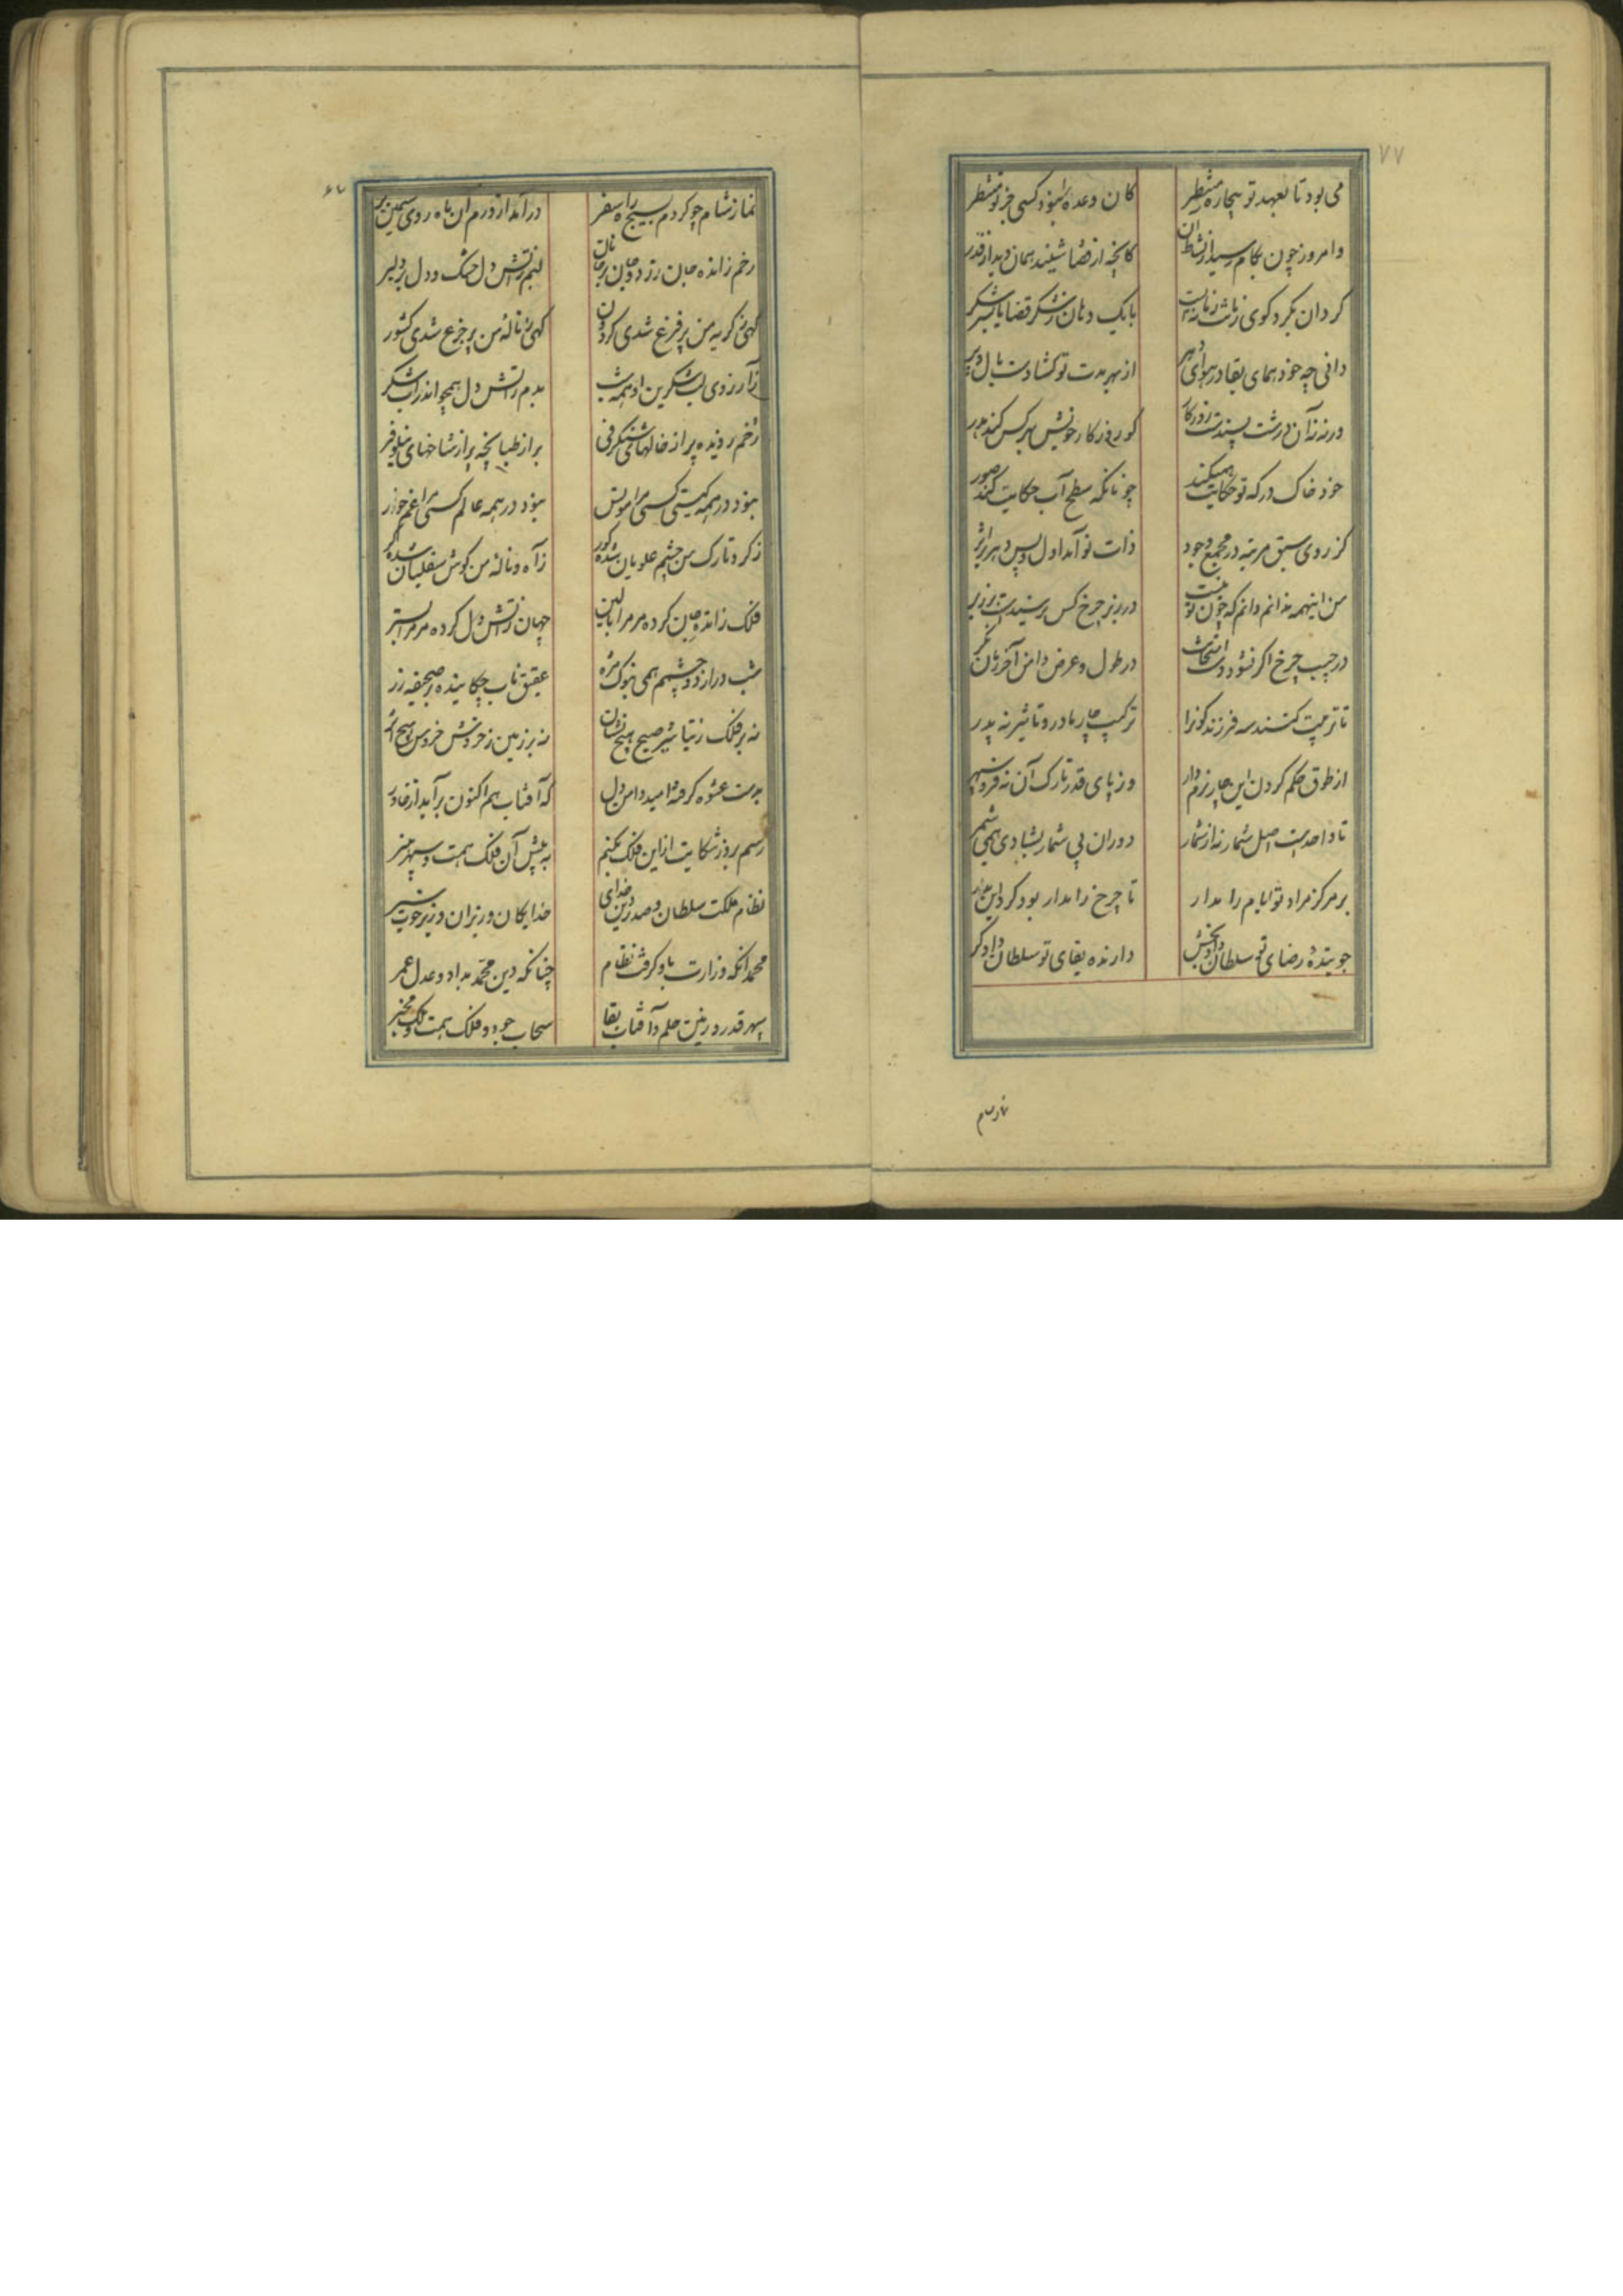 ۷۷
می بود تا بعهد تو بیچاره منتظر کان وعده را نبود کسی جز تو منتظر
وامروز چون بکام رسید از نشاط آن کانچه از قضا شنید همان دید از قدر
کردان بکرد کوی زمانه زبانیست با یک دهان ز شکر قضا یا پر شکر
دانی چه خود همای بقا در هوای دهر از بهر مدت تو کشادست بال و پر
ورنه زآن درشت پسندست روزکار کو روزکار خویش بهر کس کند هدر
خود خاک درکه تو حکایت همیکند چونانکه سطح آب حکایت کند صور
کز روی سبق مرتبه در مجمع وجود ذات تو آمد اول و پس دهر بر اثر
من اینهمه ندانم دانم که چون تو نیست در زیر چرخ کس نرسیدست بر زبر
در جیب چرخ اکر نشود دست امتحانت در طول و عرض دامن آخر زمان نکر
تا تربیت کنند سه فرزند کون را ترکیب چار مادر و تاثیر نه پدر
از طوق حکم کردن این چار نرم دار وز پای قدر تارک آن نه فرو سپر
تا واحدست اصل شمار نه از شمار دوران بی شمار بشادی همی شمر
بر مرکز مراد تو ایام را مدار تا چرخ را مدار بود کرد این مدار
جوینده رضای تو سلطان داد بخش دارنده بقای تو سلطان دادکر
نماز شام
نماز شام چو کردم بسیج راه سفر درآمد از درم آن ماه روی سیمین بر
رخم ز انده جان زرد و جان بر جانان لبم ز آتش دل خشک و دل بر دلبر
کهی ز کریه من پر فزع شدی کردون کهی ز ناله من پر جزع شدی کشور
ز آرزوی لب شکرین او همه شب بدم ز آتش دل همچو اندر آب شکر
رخم ز دیده پر از خالهای شنکرفی بر از طبانچه پر از شاخهای نیلوفر
نبود در همه کیتی کسی مرا مونس نبود در همه عالم کسی مرا غمخور
ز کرد تارک من چشم علویان شده کور ز آه و ناله من کوش سفلیان شده کر
فلک ز انده جان کرده مر مرا بالین جهان ز آتش دل کرده مر مرا بستر
شب دراز دو چشمم همی بنوک مژه عقیق ناب چکاینده بر صحیفه زر
نه بر فلک ز تباشیر صبح هیچ نشان نه بر زمین ز خروش خروس هیچ اثر
بدست عشوه کرفته امید دامن دل که آفتاب هم اکنون برآید از خاور
رسم بروز شکایت از این فلک بکنم به پیش آن فلک همت و سپهر هنر
نظام ملکت سلطان و صدر دین خدای خدایکان وزیران وزیر خوب سیر
محمد آنکه وزارت باو کرفت نظام چنانکه دین محمد بداد و عدل عمر
سپهر قدر و زمین حلم و آفتاب بقا سحاب جود و فلک همت و ملک مخبر